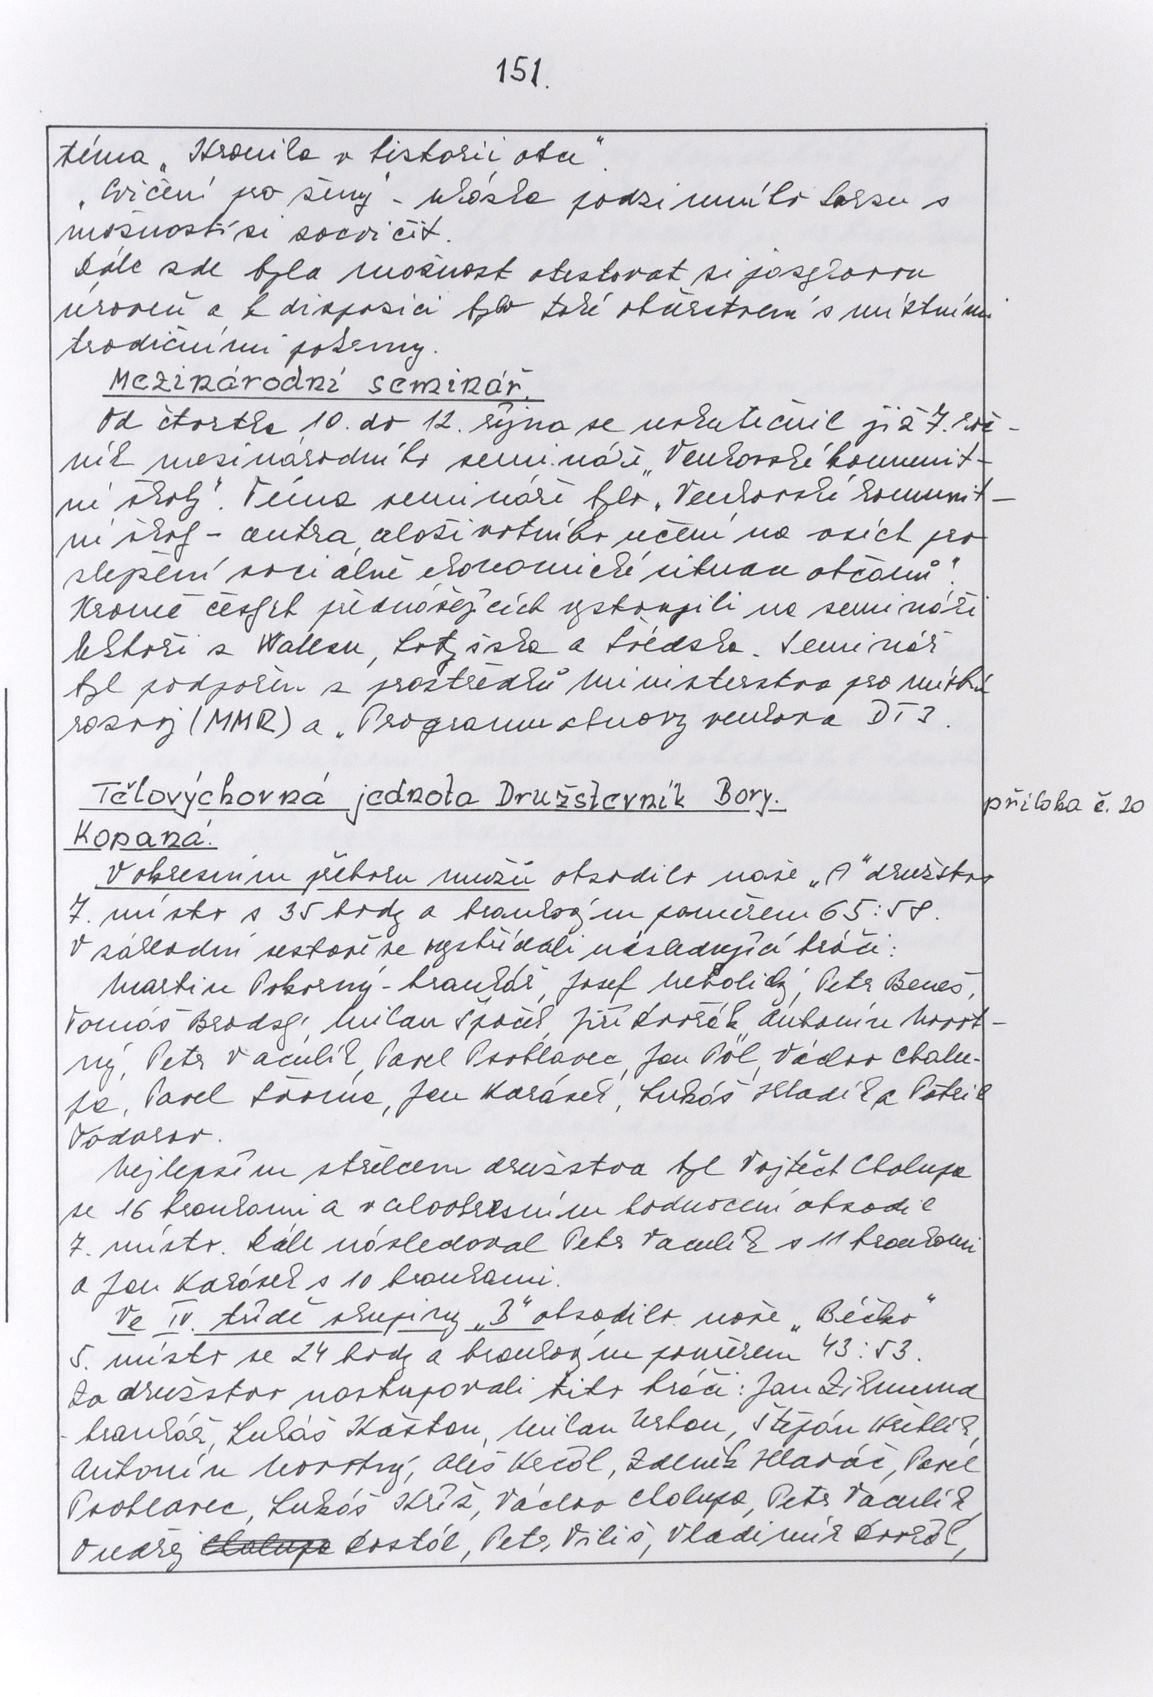 151.
téma „Kronika v historii obce“.
„Cvičení pro ženy“ - ukázka podzimního kursu s
možností si zacvičit.
Dále zde byla možnost otestovat si jazykovou
úroveň a k disposici bylo také občerstvení s místními
tradičními pokrmy.
Mezinárodní seminář.
Od čtvrtka 10. do 12. října se uskutečnil již 7. roč-
ník mezinárodního semináře „Venkovské komunit-
ní školy“. Téma semináře bylo „Venkovské komunit-
ní školy - centra celoživotního učení na vsích pro
zlepšení sociálně ekonomické situace občanů“.
Kromě českých přednášejících vystoupili na semináři
lektoři z Walesu, Lotyšska a Švédska. Seminář
byl podpořen z prostředků Ministerstva pro místní
rozvoj (MMR) a „Programu obnovy venkova DT 3.
Tělovýchovná jednota Družstevník Bory.
příloha č. 20
Kopaná.
V okresním přeboru mužů obsadilo naše „A“ družstvo
7. místo s 35 body a brankovým poměrem 65:58.
V základní sestavě se vystřídali následující hráči:
Martin Pokorný - brankář, Josef Nebolický, Petr Beneš,
Tomáš Brodský, Milan Špaček, Jiří Dvořák, Antonín Novot-
ný, Petr Vaculík, Pavel Poohlavec, Jan Pól, Václav Chalu-
pa, Pavel Sláma, Jan Karásek, Lukáš Hladík a Patrik
Vodarov.
Nejlepším střelcem družstva byl Vojtěch Chalupa
se 16 brankami a v celookresním hodnocení obsadil
7. místo. Dále následoval Petr Vaculík s 11 brankami
a Jan Karásek s 10 brankami.
Ve IV. třídě skupiny „B“ obsadilo naše „Béčko“
5. místo se 24 body a brankovým poměrem 43:53.
Za družstvo nastupovali tito hráči: Jan Zikmund
- brankář, Lukáš Kaštan, Milan Urban, Štěpán Kříblík,
Antonín Novotný, Aleš Kečil, Zdeněk Hlaváč, Pavel
Poohlavec, Lukáš Kříž, Václav Chalupa, Petr Vaculík,
Ondřej Chalupa Dostál, Petr Viliš, Vladimír Dvořák,